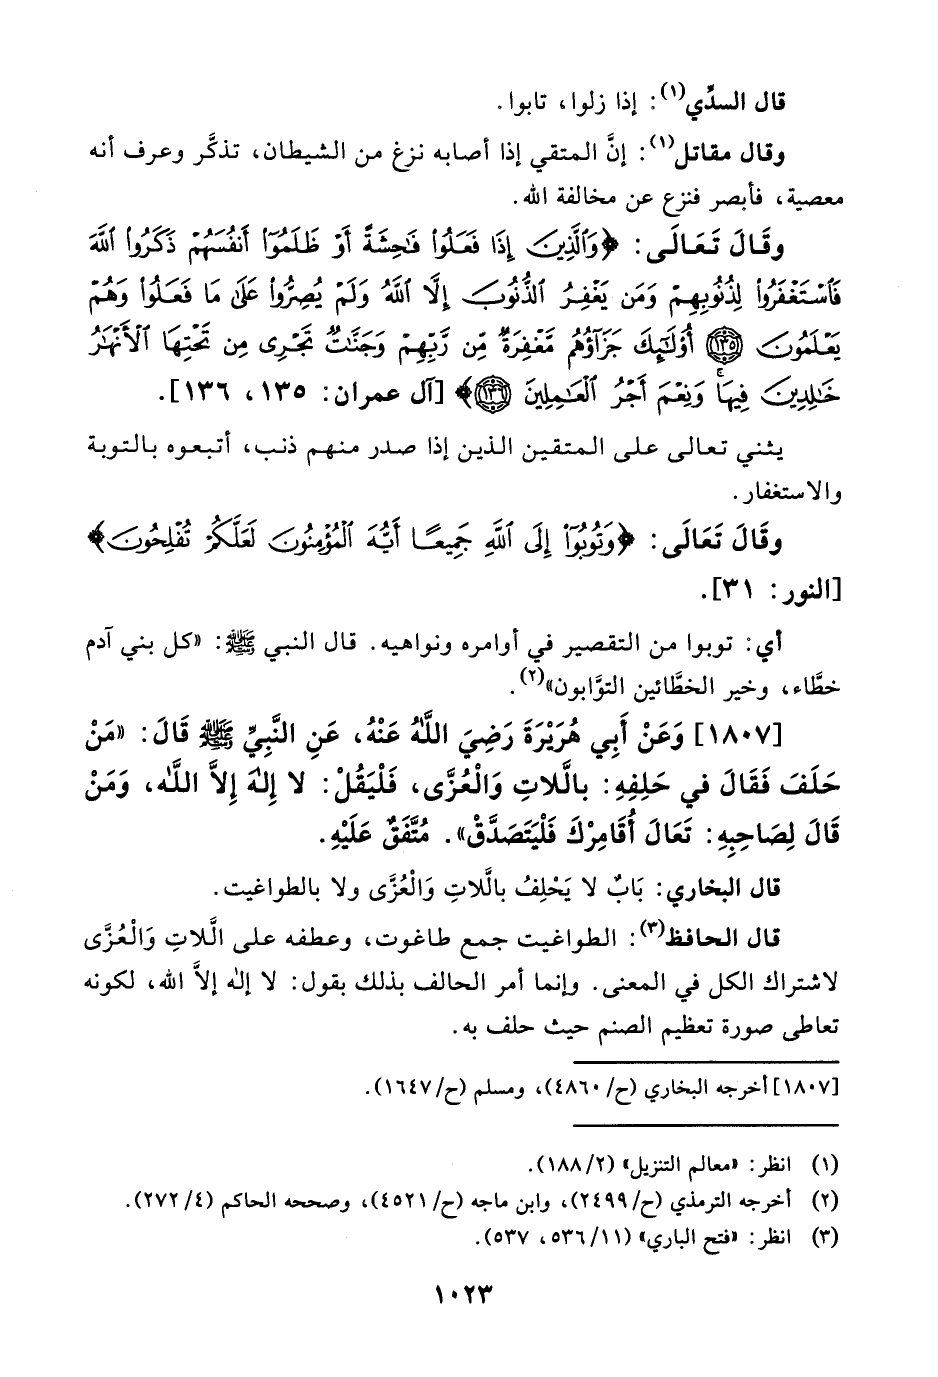 قال السدِّي(١): إذا زلوا، تابوا.
وقال مقاتل(١): إنَّ المتقي إذا أصابه نزغ من الشيطان، تذكَّر وعرف أنه
معصية، فأبصر فنزع عن مخالفة الله.
وقَالَ تَعَالَى: ﴿وَٱلَّذِينَ إِذَا فَعَلُوا۟ فَـٰحِشَةً أَوْ ظَلَمُوٓا۟ أَنفُسَهُمْ ذَكَرُوا۟ ٱللَّهَ
فَٱسْتَغْفَرُوا۟ لِذُنُوبِهِمْ وَمَن يَغْفِرُ ٱلذُّنُوبَ إِلَّا ٱللَّهُ وَلَمْ يُصِرُّوا۟ عَلَىٰ مَا فَعَلُوا۟ وَهُمْ
يَعْلَمُونَ ۝١٣٥ أُو۟لَـٰٓئِكَ جَزَآؤُهُم مَّغْفِرَةٌ مِّن رَّبِّهِمْ وَجَنَّـٰتٌ تَجْرِى مِن تَحْتِهَا ٱلْأَنْهَـٰرُ
خَـٰلِدِينَ فِيهَا ۚ وَنِعْمَ أَجْرُ ٱلْعَـٰمِلِينَ ۝١٣٦﴾ [آل عمران: ١٣٥، ١٣٦].
يثني تعالى على المتقين الذين إذا صدر منهم ذنب، أتبعوه بالتوبة
والاستغفار.
وقَالَ تَعَالَى: ﴿وَتُوبُوٓا۟ إِلَى ٱللَّهِ جَمِيعًا أَيُّهَ ٱلْمُؤْمِنُونَ لَعَلَّكُمْ تُفْلِحُونَ﴾
[النور: ٣١].
أي: توبوا من التقصير في أوامره ونواهيه. قال النبي ﷺ: «كل بني آدم
خطَّاء، وخير الخطَّائين التوَّابون»(٢).
[١٨٠٧] وَعَنْ أَبِي هُرَيْرَةَ رَضِيَ اللَّهُ عَنْهُ، عَنِ النَّبِيِّ ﷺ قَالَ: «مَنْ
حَلَفَ فَقَالَ في حَلِفِهِ: بالَّلاتِ وَالْعُزَّى، فَلْيَقُلْ: لا إِلهَ إِلاَّ اللَّه، وَمَنْ
قَالَ لِصَاحِبِهِ: تَعَالَ أُقَامِرْكَ فَلْيَتَصَدَّقْ». مُتَّفَقٌ عَلَيْهِ.
قال البخاري: بَابٌ لا يَحْلِفُ بالَّلاتِ وَالْعُزَّى ولا بالطواغيت.
قال الحافظ(٣): الطواغيت جمع طاغوت، وعطفه على الَّلاتِ وَالْعُزَّى
لاشتراك الكل في المعنى. وإنما أمر الحالف بذلك بقول: لا إله إلاَّ الله، لكونه
تعاطى صورة تعظيم الصنم حيث حلف به.
[١٨٠٧] أخرجه البخاري (ح/٤٨٦٠)، ومسلم (ح/١٦٤٧).
(١) انظر: «معالم التنزيل» (١٨٨/٢).
(٢) أخرجه الترمذي (ح/٢٤٩٩)، وابن ماجه (ح/٤٥٢١)، وصححه الحاكم (٢٧٢/٤).
(٣) انظر: «فتح الباري» (٥٣٦/١١، ٥٣٧).
١٠٢٣